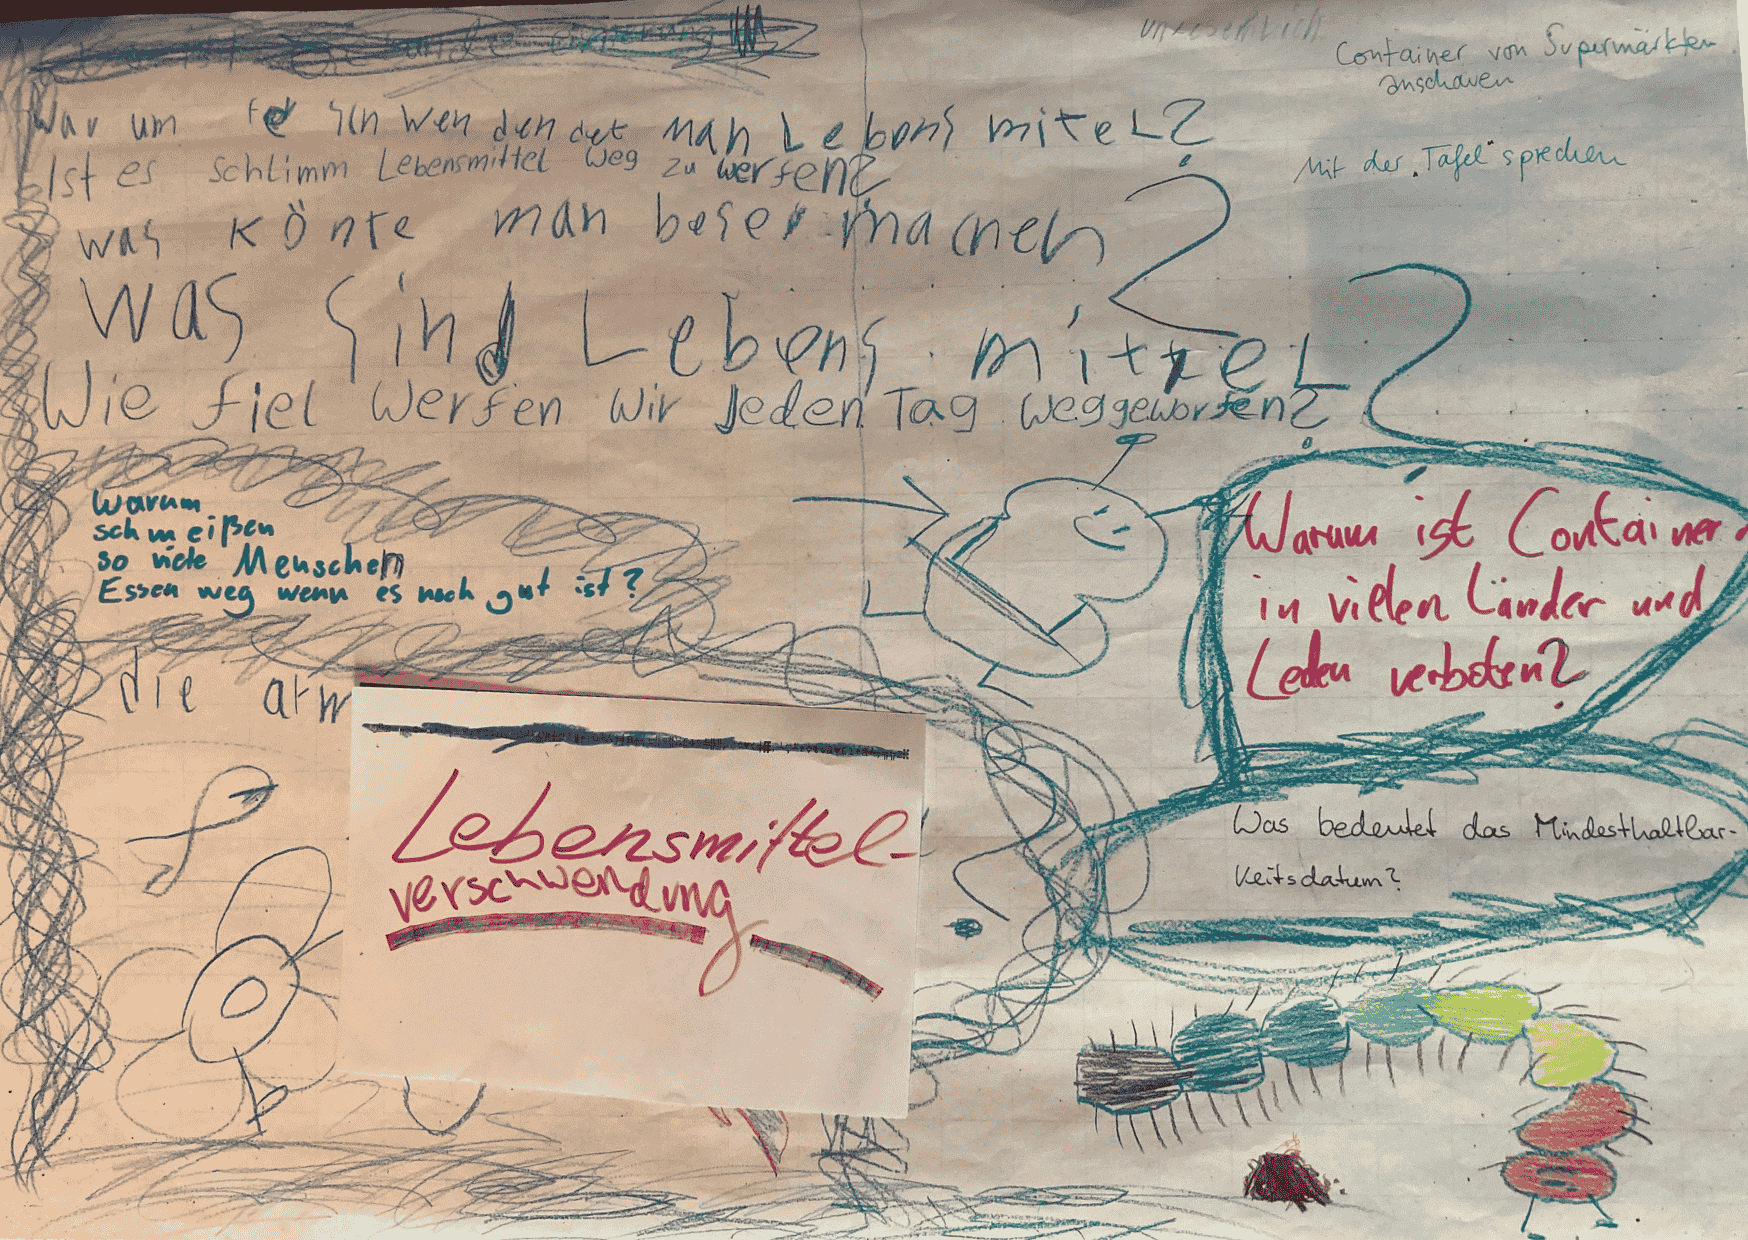 unleserlich
Container von Supermärkten
anschauen
Mit der „Tafel“ sprechen
War um man Lebens mitel?
Ist es schlimm Lebensmittel weg zu werfen?
was könte man beser machen?
was sind Lebens mittel?
Wie fiel werfen wir jeden Tag weggeworfen?
warum
schmeißen
so viele Menschen
Essen weg wenn es noch gut ist?
Warum ist Container
in vielen Länder und
Leden verboten?
die arm
Lebensmittel-
verschwendung
Was bedeutet das Mindesthaltbar-
keitsdatum?